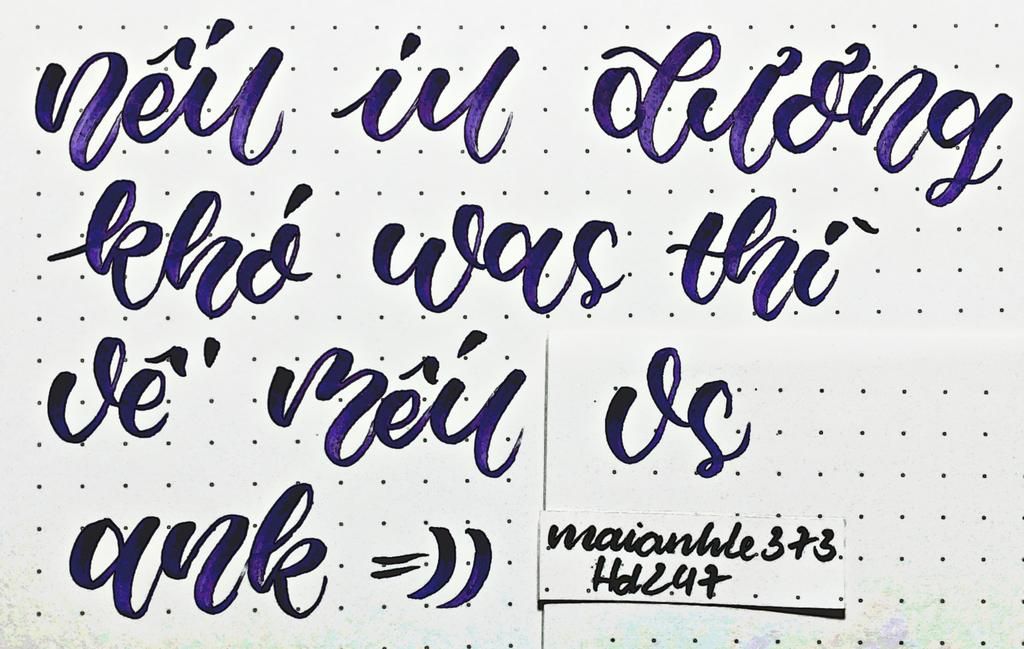 nếu iu đương
khó was thì
về mếu vs
ank =))
maianhle373
Hd247